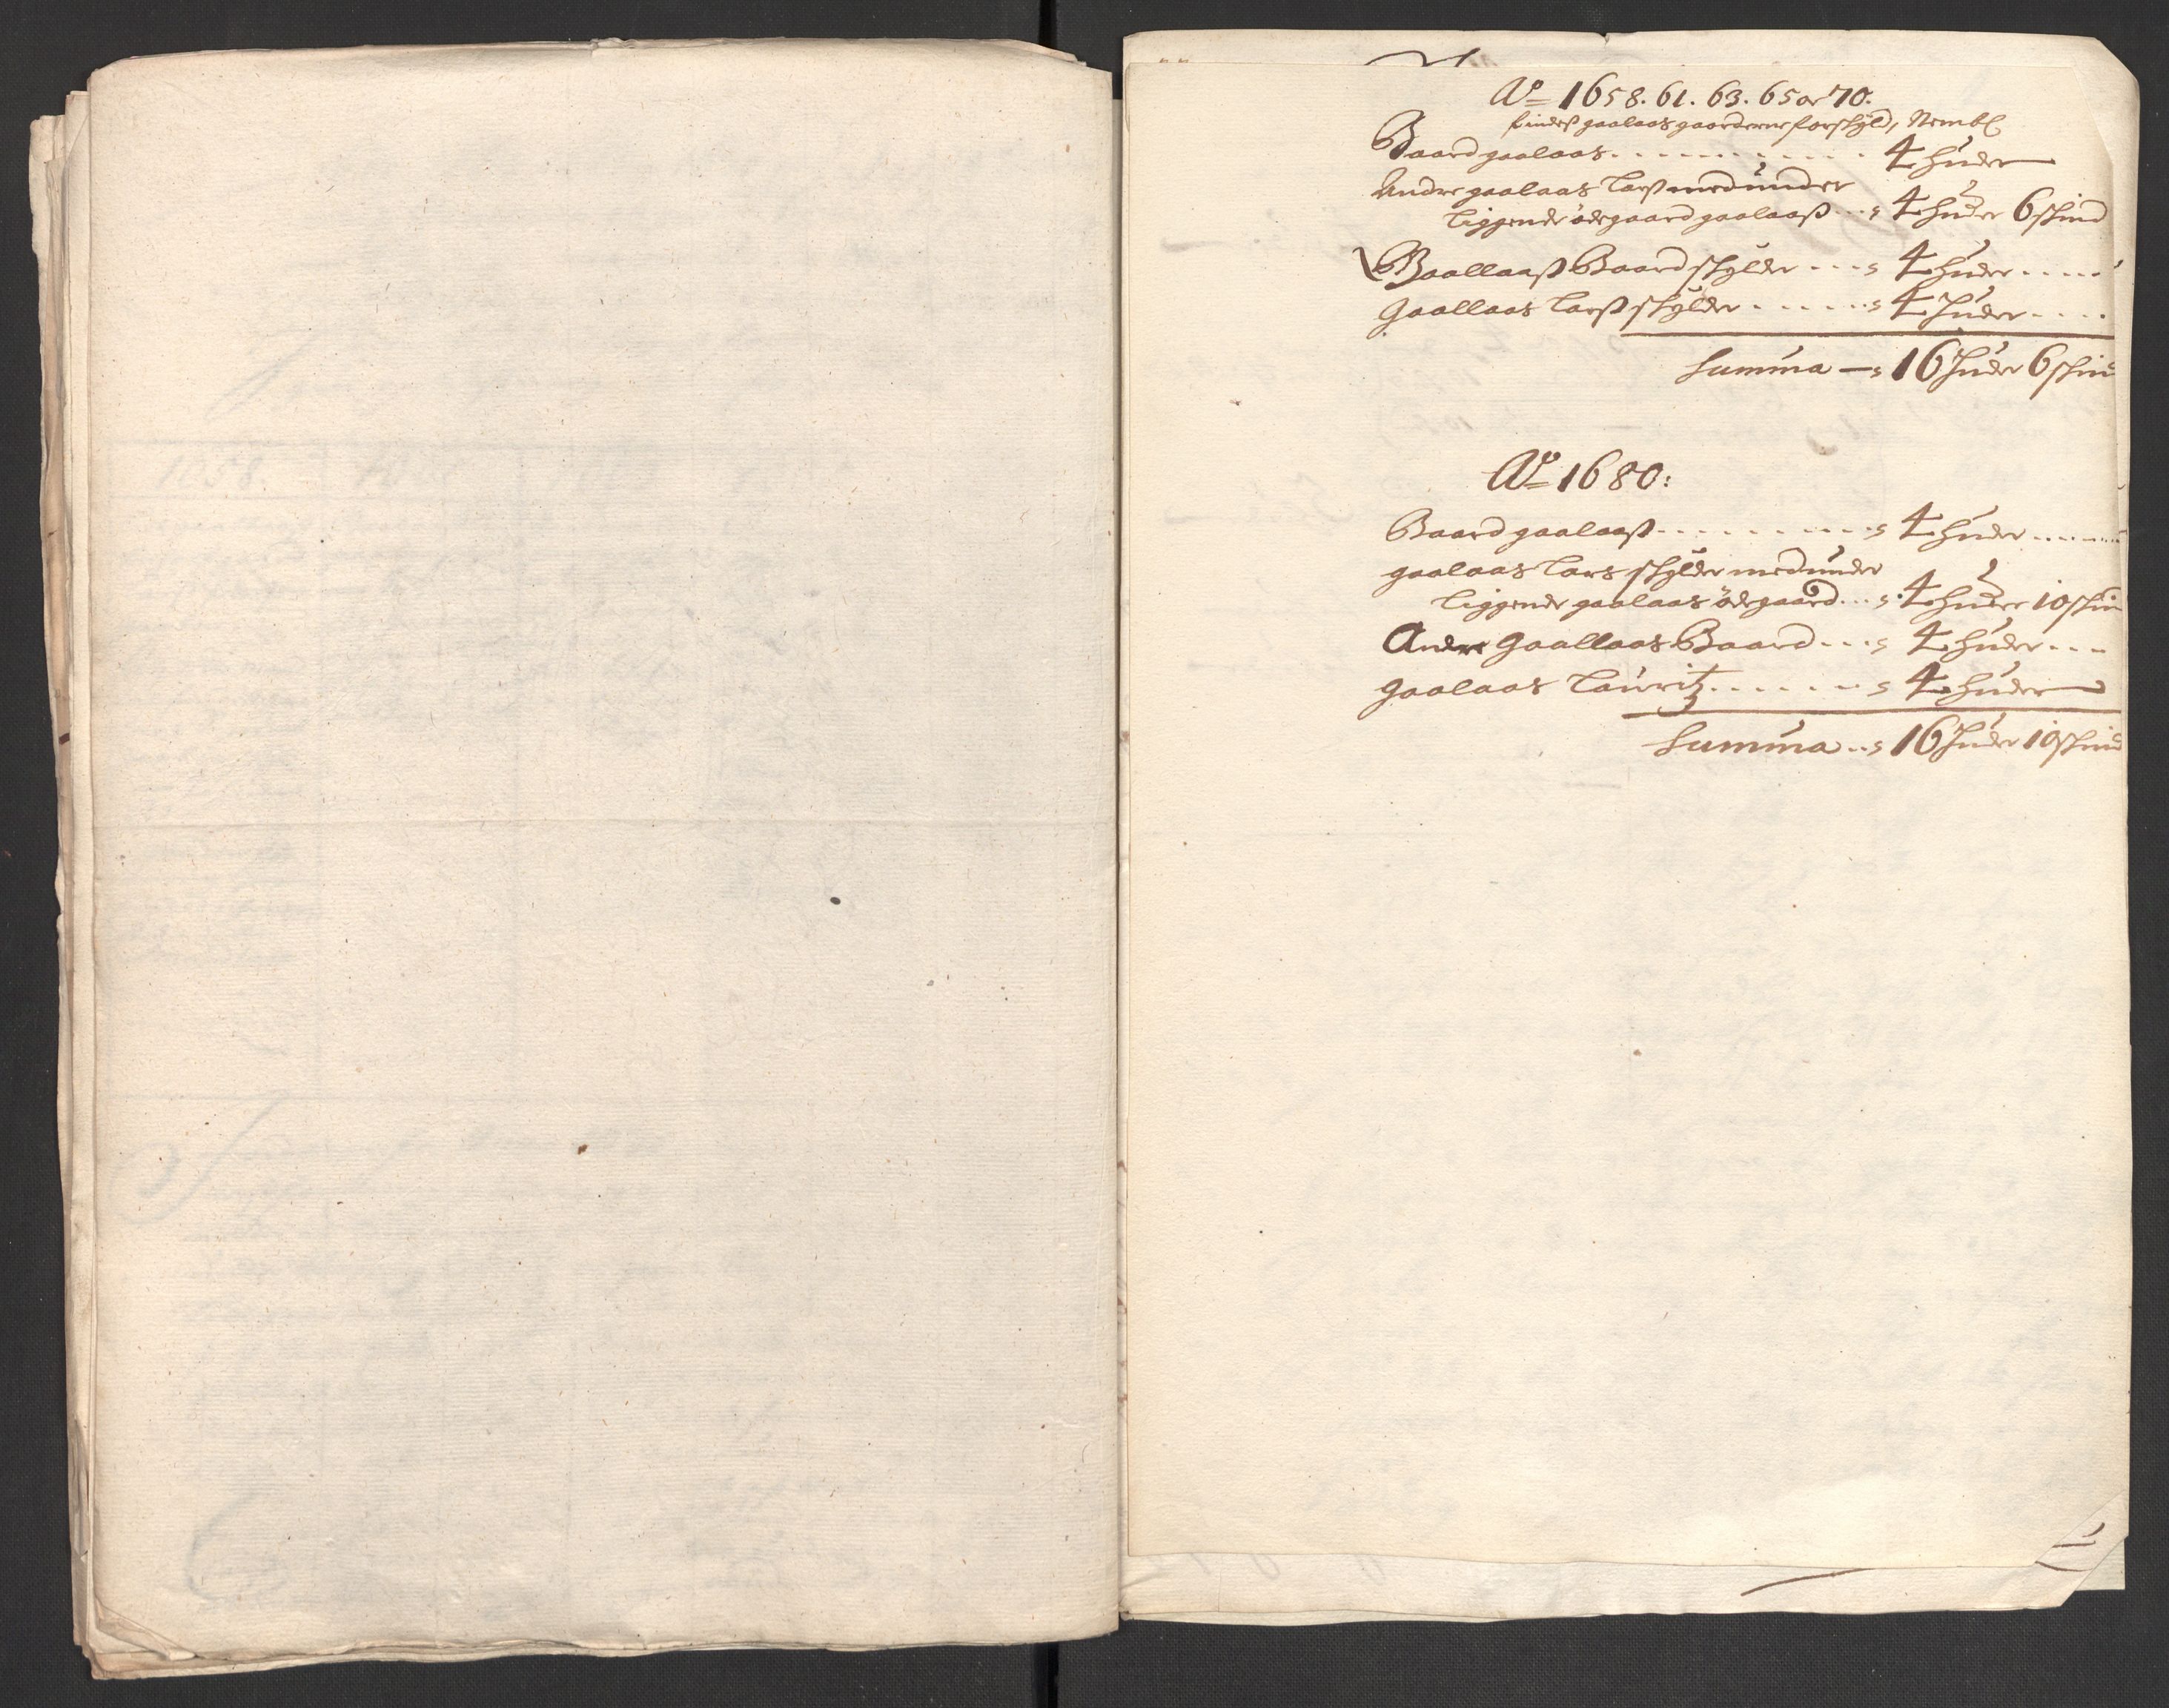 Ao 1658. 61. 63. 65 oc 70.
findeß gaalaas gaarderne for skyld, Nembl
Baard gaalaas . . . . . . . . . . 4 huder
Andre gaalaas Larß med under
liggende ödegaard gaalaaß . . . 4 huder 6 skind
Gaallaaß Baard skylder . . . 4 huder . . . . .
Gaallaas Larß skylder . . . . . . 4 huder . . . .
Summa — 16 huder 6 skind
Ao 1680:
Baard gaalaaß . . . . . . . . . . 4 huder . . . . .
gaalaas Lars skylder med under
liggende gaalaas ödegaard . . . 4 huder 10 skin
Andre Gaallaas Baard . . . 4 huder . . .
Gaalaas Lauritz . . . . . . . 4 huder
Summa . . 16 huder 10 skind